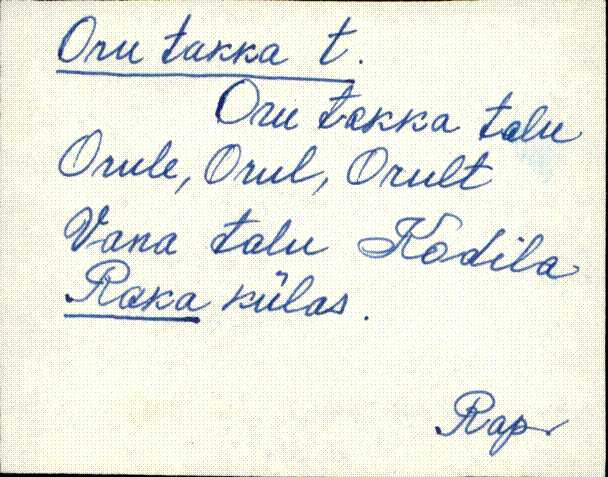 Oru takka t.
Oru takka talu
Orule, Orul, Orult
Vana talu Kodila
Raka külas.
Rap